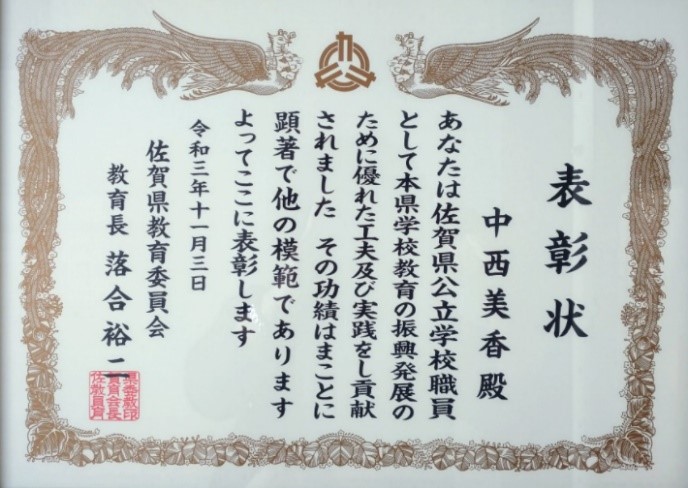 表彰状
中西美香殿
あなたは佐賀県公立学校職員
として本県学校教育の振興発展の
ために優れた工夫及び実践をし貢献
されました その功績はまことに
顕著で他の模範であります
よってここに表彰します
令和三年十一月三日
佐賀県教育委員会
教育長 落合裕二